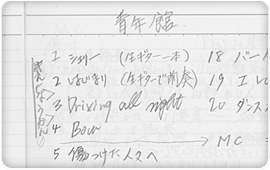 青年館
1 シェリー (生ギター一本) 18 バー
2 はじまり (生ギターで前奏) 19 エレ
3 Driving all night 20 ダンス
4 Bow
→ MC
5 傷つけた人々へ